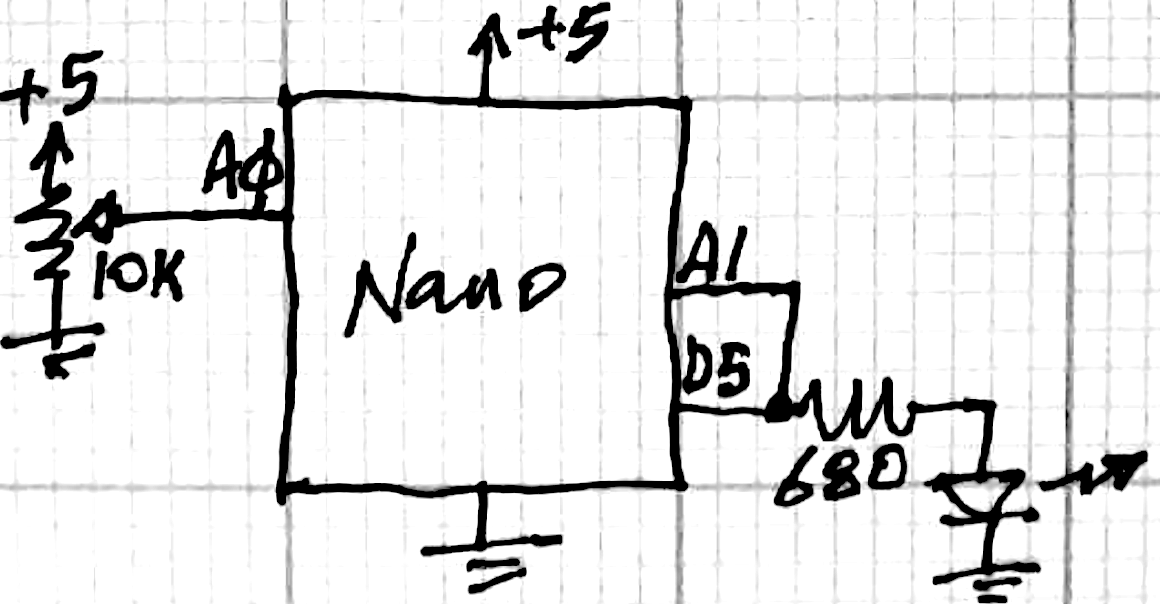 +5
+5
AΦ
10K
Nano
A1
D5
680